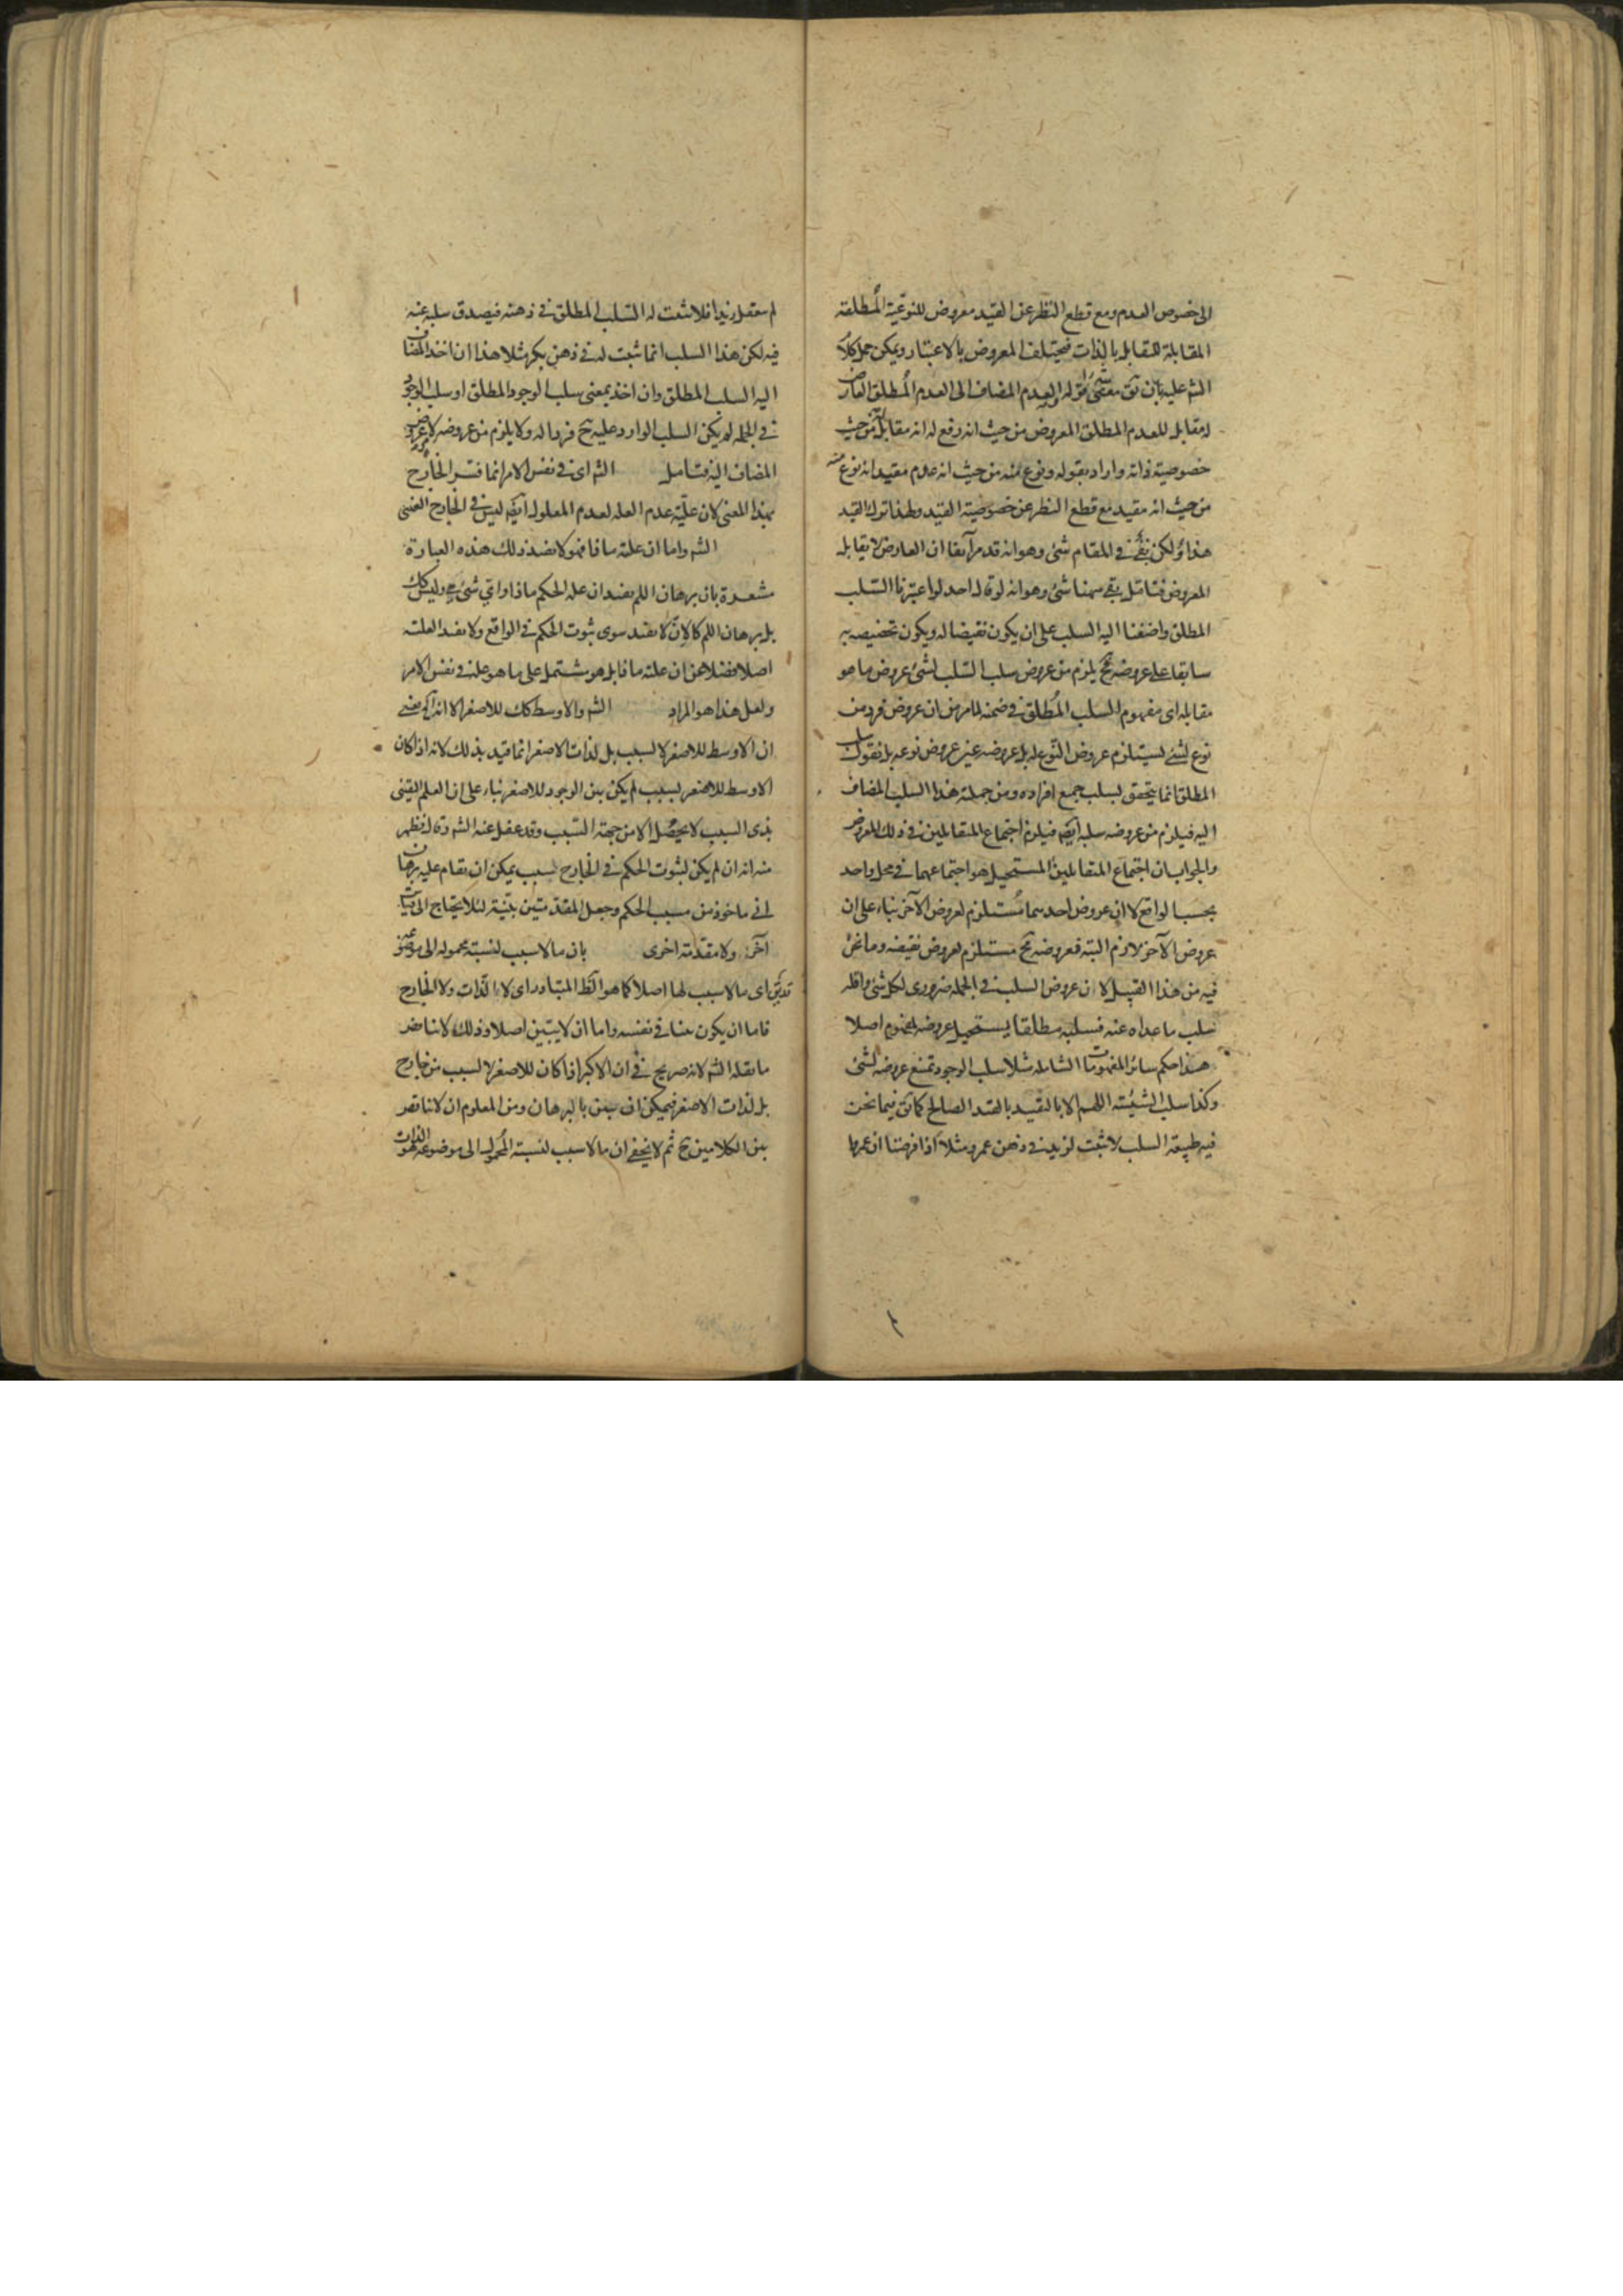 الى خصوص العدم ومع قطع النظر عن القيد معروض للنوعية المطلقة
المقابلة للتقابل بالذات فيختلف المعروض بالاعتبار ويمكن حمل كلام
الش عليه بان معنى قوله العدم المضاف الى العدم المطلق العارض
له مقابل للعدم المطلق المعروض من حيث انه رفع له انه مقابل له من حيث
خصوصية ذاته واراد بقوله ونوع منه من حيث انه عدم مقيد انه نوع منه
من حيث انه مقيد مع قطع النظر عن خصوصية القيد ولهذا ترك القيد
هذا ولكن بقى في المقام شئ وهو انه قد مر آنفا ان العارض لا يقابل
المعروض فتامل بقى ههنا شئ وهو انه لو قال احد لو اعتبرنا السلب
المطلق واضفنا اليه السلب على ان يكون نقيضا له ويكون تخصيصه به
سابقا على عروضه ح يلزم من عروض سلب السلب لشئ عروض ما هو
مقابله اى مفهوم السلب المطلق في ضمنه لما مر من ان عروض فرد من
نوع لشئ يستلزم عروض النوع له بل عروضه عين عروض نوعه بل نقول سلب
المطلق انما يتحقق بسلب جميع افراده ومن جملته هذا السلب المضاف
اليه فيلزم من عروضه سلبه ايضه فيلزم اجتماع المتقابلين في ذلك المعروض
والجواب ان اجتماع المتقابلين المستحيل هو اجتماعهما في محل واحد
بحسب الواقع لا ان عروض احدهما مستلزم لعروض الآخر بناء على ان
عروض الآخر لازم البتة فعروضه ح مستلزم لعروض نقيضه وما نحن
فيه من هذا القبيل لان عروض السلب في الجملة ضرورى لكل شئ واقله
سلب ما عداه عنه فسلبه مطلقا يستحيل عروضه لمفهوم اصلا
هذا حكم سائر المفهومات الشاملة مثلا سلب الوجود تمتنع عروضه لشئ
وكذا سلب الشيئية اللهم الا بالتقييد بالقيد الصالح كما فيما نحن
فيه طبيعة السلب لا تثبت لزيد في ذهن عمرو مثلا اذا فرضنا ان عمروا
لم يتعقل زيدا فلا تثبت له السلب المطلق في ذهنه فيصدق سلبه عنه
فيه لكن هذا السلب انما ثبت له في ذهن بكر مثلا هذا ان اخذ المضاف
اليه السلب المطلق وان اخذ بمعنى سلب الوجود المطلق او سلب الوجود
في الجملة لم يكن السلب الوارد عليه ح فردا له ولا يلزم من عروضه لا عروض
المضاف اليه فتامل الش اى في نفس الامر انما فسر الخارج
بهذا المعنى لان علية عدم العلة لعدم المعلول ايضه ليس في الخارج العيني
الش واما ان علته ماذا فهو لا يفيد ذلك هذه العبارة
مشعرة بان برهان اللم يفيد ان علة الحكم ماذا واي شئ هي وليس كك
بل برهان اللم كالان لا يفيد سوى ثبوت الحكم في الواقع ولا يفيد العلية
اصلا فضلا عن ان علته ماذا بل هو مشتمل على ما هو علته في نفس الامر
ولعل هذا هو المراد الش والاوسط كك للاصغر الا انه
ان الاوسط للاصغر لا لسبب بل لذات الاصغر انما قيد بذلك لانه اذا كان
الاوسط للاصغر لسبب لم يكن بين الوجود للاصغر بناء على ان العلم اليقيني
بذى السبب لا يحصل الا من جهة السبب وقد غفل عنه الش وقال فظهر
منه انه ان لم يكن لثبوت الحكم في الخارج سبب يمكن ان يقام عليه برهان
انى ماخوذ من مسبب الحكم وجعل المقدمتين بينة لئلا يحتاج الى بيان
آخر ولا مقدمة اخرى بان ما لا سبب لنسبة محموله الى موضوعه
اى ما لا سبب لها اصلا كما هو الظ المتبادر اى لا الذات ولا الخارج
فاما ان يكون بينا في نفسه واما ان لا يتبين اصلا وذلك لا
ما نقله الش لانه صريح في ان الاكبر اذا كان للاصغر لا لسبب من خارج
بل لذات الاصغر فيمكن ان يبين بالبرهان ومن المعلوم ان لا
بين الكلامين ح ثم لا يخفى ان ما لا سبب لنسبة المحمول الى موضوعه